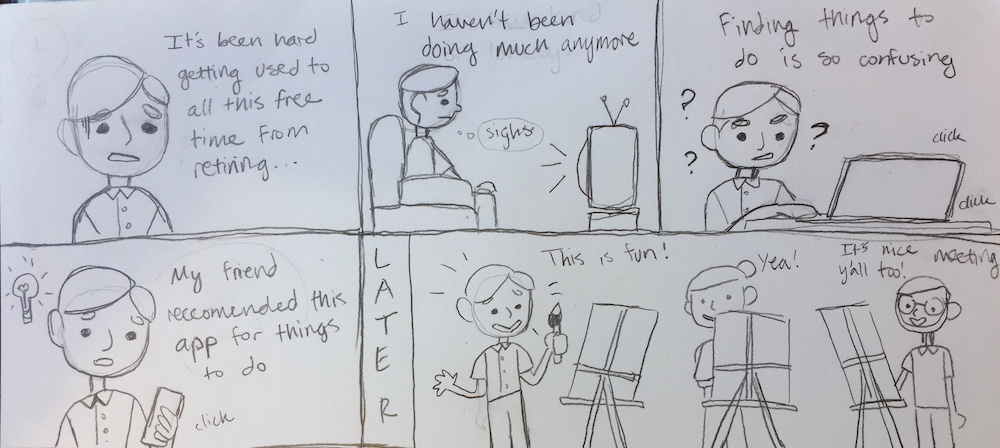 It's been hard
getting used to
all this free
time from
retiring...
I haven't been
doing much anymore
sighs
Finding things to
do is so confusing
?
?
?
click
click
My friend
reccomended this
app for things
to do
click
LATER
This is fun!
Yea!
It's nice meeting
y'all too!